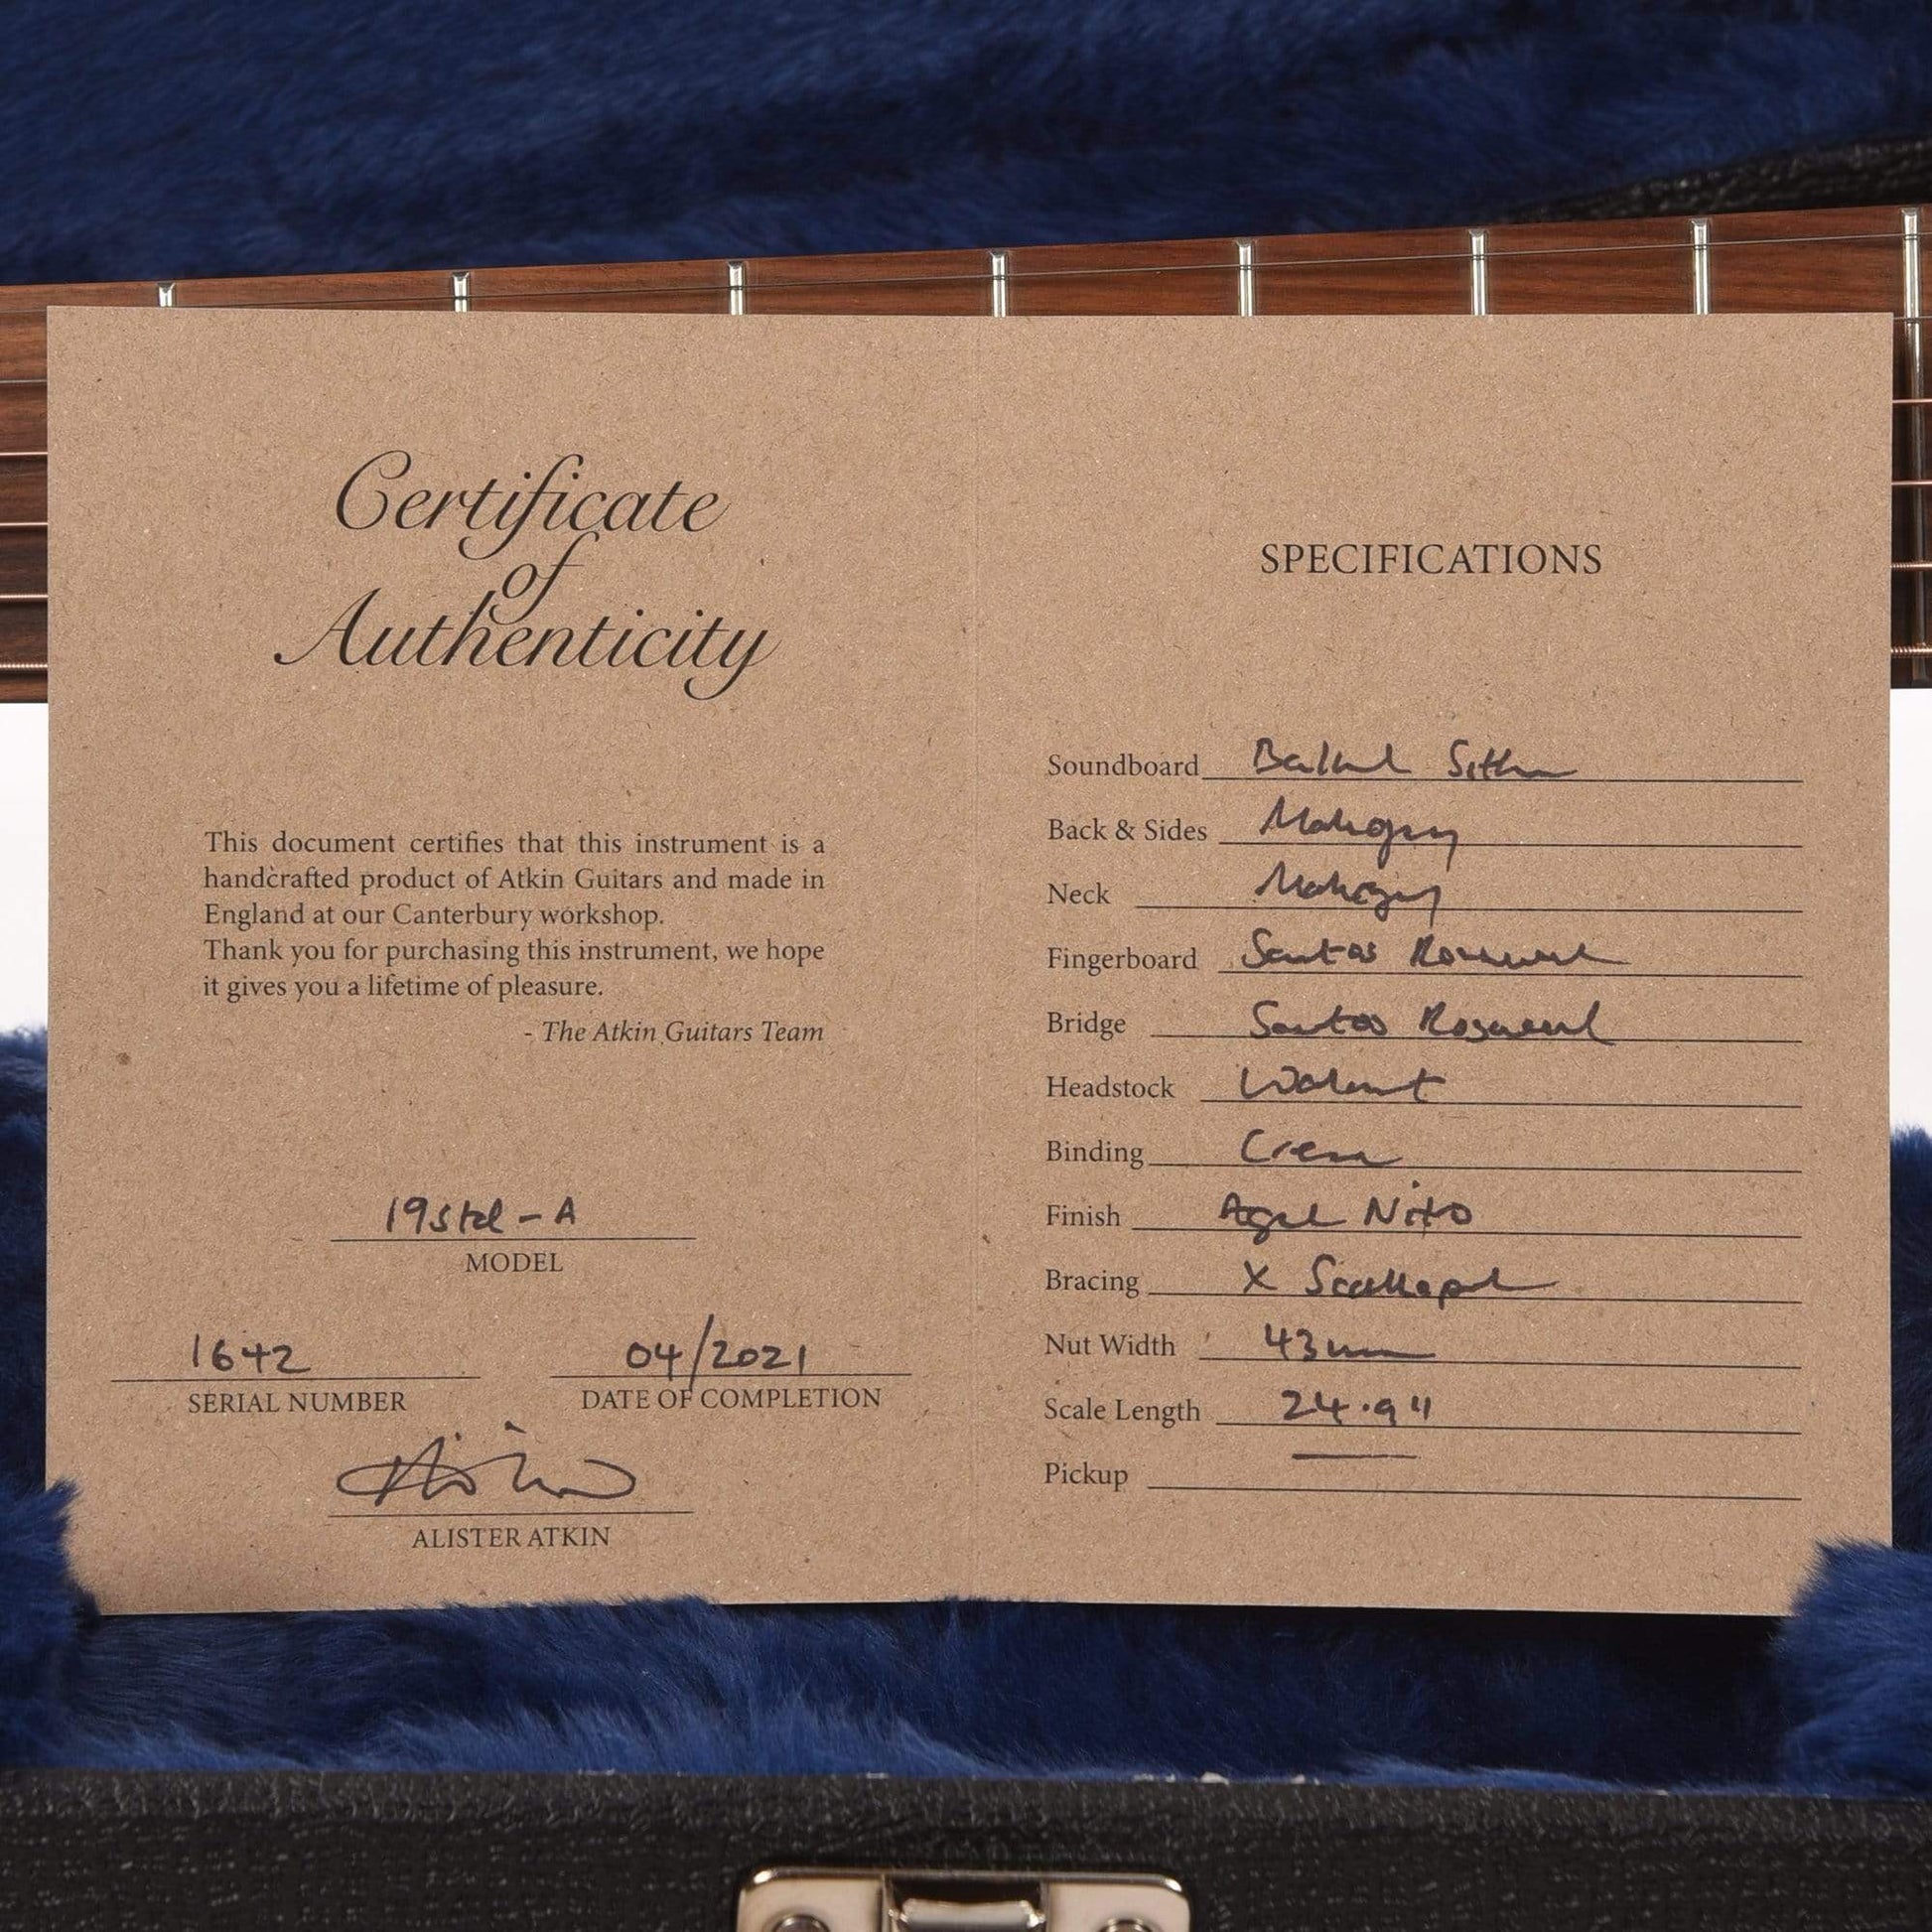 Certificate
of
Authenticity
This document certifies that this instrument is a
handcrafted product of Atkin Guitars and made in
England at our Canterbury workshop.
Thank you for purchasing this instrument, we hope
it gives you a lifetime of pleasure.
- The Atkin Guitars Team
MODEL
1642
SERIAL NUMBER
04/2021
DATE OF COMPLETION
ALISTER ATKIN
SPECIFICATIONS
Soundboard Baked Sitka
Back & Sides Mahogany
Neck Mahogany
Fingerboard Santos Rosewood
Bridge Santos Rosewood
Headstock Walnut
Binding Cream
Finish Aged Nitro
Bracing X Scalloped
Nut Width 43mm
Scale Length 24.9"
Pickup —